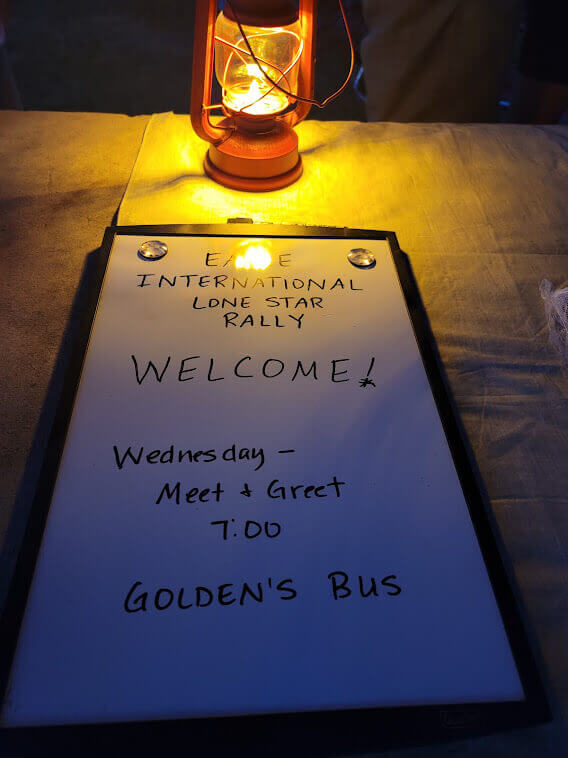 INTERNATIONAL
LONE STAR
RALLY
WELCOME!
Wednesday -
Meet & Greet
7:00
GOLDEN'S BUS